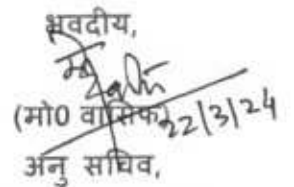 भवदीय,
(मो0 वासिफ)
22/3/24
अनु सचिव,